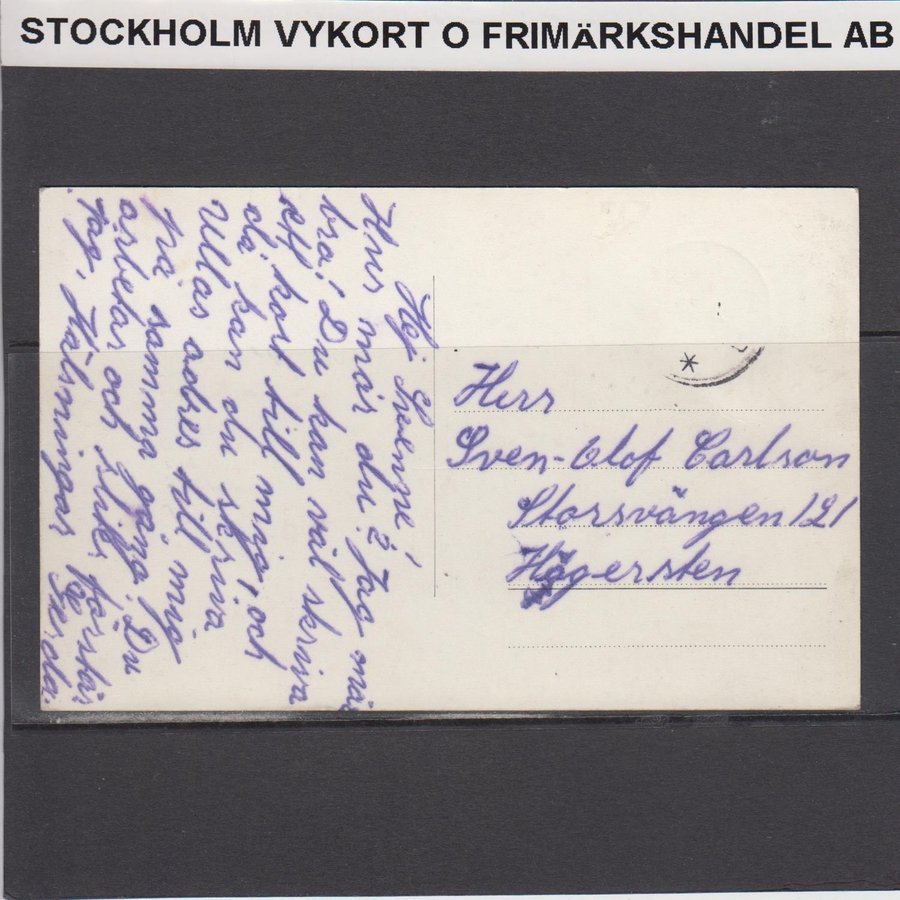 STOCKHOLM VYKORT O FRIMÄRKSHANDEL AB
Hej Svenne!
Hur mår du? Jag mår
bra! Du kan väl skriva
ett kort till mig, och
då kan du skriva
Ullas adres till mig
på samma gång. Du
arbetar och sliter förstår
jag. Hälsningar
Herr
Sven-Olof Carlson
Storsvängen 121
Hägersten